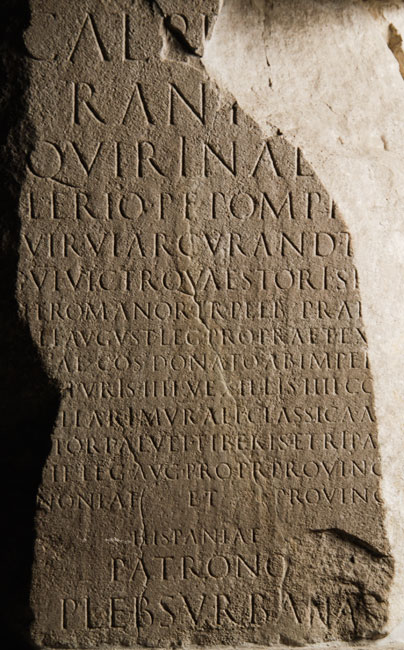 CALPE
RANTI
QVIRINAL
LERIO P F POMP
VIR VIAR CVRANDA
VI VICTR QVAESTORI SE
T ROMANOR TR PLEB PRAE
LI AVGVST LEG PRO PRAET EX
AE COS DONATO AB IMPE
PVRIS IIII VEXILLIS IIII CO
LLARI MVRALI CLASSICA A
TORI ALVEI TIBERIS ET RIPA
TIF LEG AVG PRO PR PROVINC
NONIAE ET PROVINC
HISPANIAE
PATRONO
PLEBS VRBANA